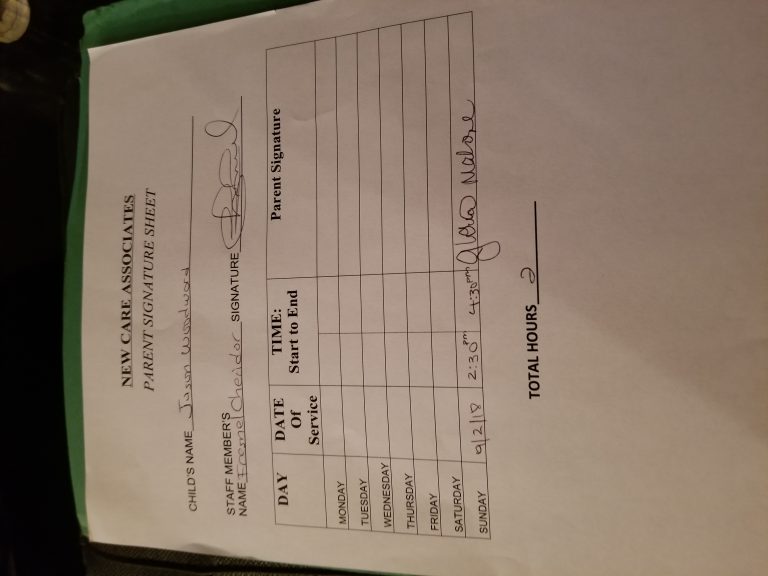 NEW CARE ASSOCIATES
PARENT SIGNATURE SHEET
CHILD'S NAME Jason Woodward
STAFF MEMBER'S
NAME Fremel Cheridor SIGNATURE
DAY DATE Of Service TIME: Start to End Parent Signature
MONDAY
TUESDAY
WEDNESDAY
THURSDAY
FRIDAY
SATURDAY
SUNDAY 9/2/18 2:30pm 4:30pm Gloria Malone
TOTAL HOURS 2